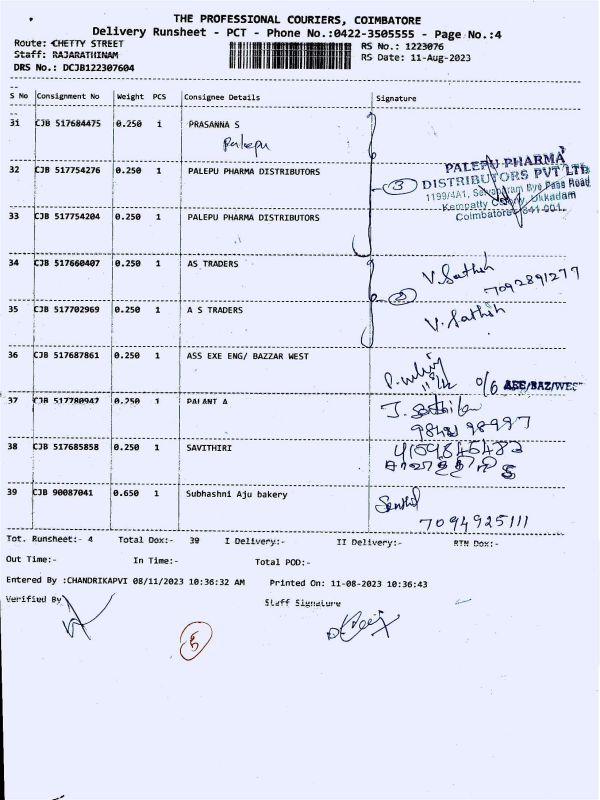 THE PROFESSIONAL COURIERS, COIMBATORE
Delivery Runsheet - PCT - Phone No.:0422-3505555 - Page No.:4
Route: CHETTY STREET
RS No.: 1223076
Staff: RAJARATHINAM
RS Date: 11-Aug-2023
DRS No.: DCJB122307604
S No Consignment No Weight PCS Consignee Details Signature
31 CJB 517684475 0.250 1 PRASANNA S
Palepu
32 CJB 517754276 0.250 1 PALEPU PHARMA DISTRIBUTORS
3
PALEPU PHARMA
DISTRIBUTORS PVT LTD
1199/4A1, Selvapuram Bye Pass Road
Kempatty Colony, Ukkadam
Coimbatore-641 001.
33 CJB 517754204 0.250 1 PALEPU PHARMA DISTRIBUTORS
34 CJB 517660407 0.250 1 AS TRADERS V. Sathish
7092891277
2
35 CJB 517702969 0.250 1 A S TRADERS V. Sathish
36 CJB 517687861 0.250 1 ASS EXE ENG/ BAZZAR WEST
O/6 AEE/BAZ/WEST
37 CJB 517780947 0.250 1 PALANI A
38 CJB 517685858 0.250 1 SAVITHIRI
39 CJB 90087041 0.650 1 Subhashni Aju bakery Senthil
7094925111
Tot. Runsheet:- 4 Total Dox:- 39 I Delivery:- II Delivery:- RTN Dox:-
Out Time:- In Time:- Total POD:-
Entered By :CHANDRIKAPVI 08/11/2023 10:36:32 AM Printed On: 11-08-2023 10:36:43
Verified By Staff Signature
5